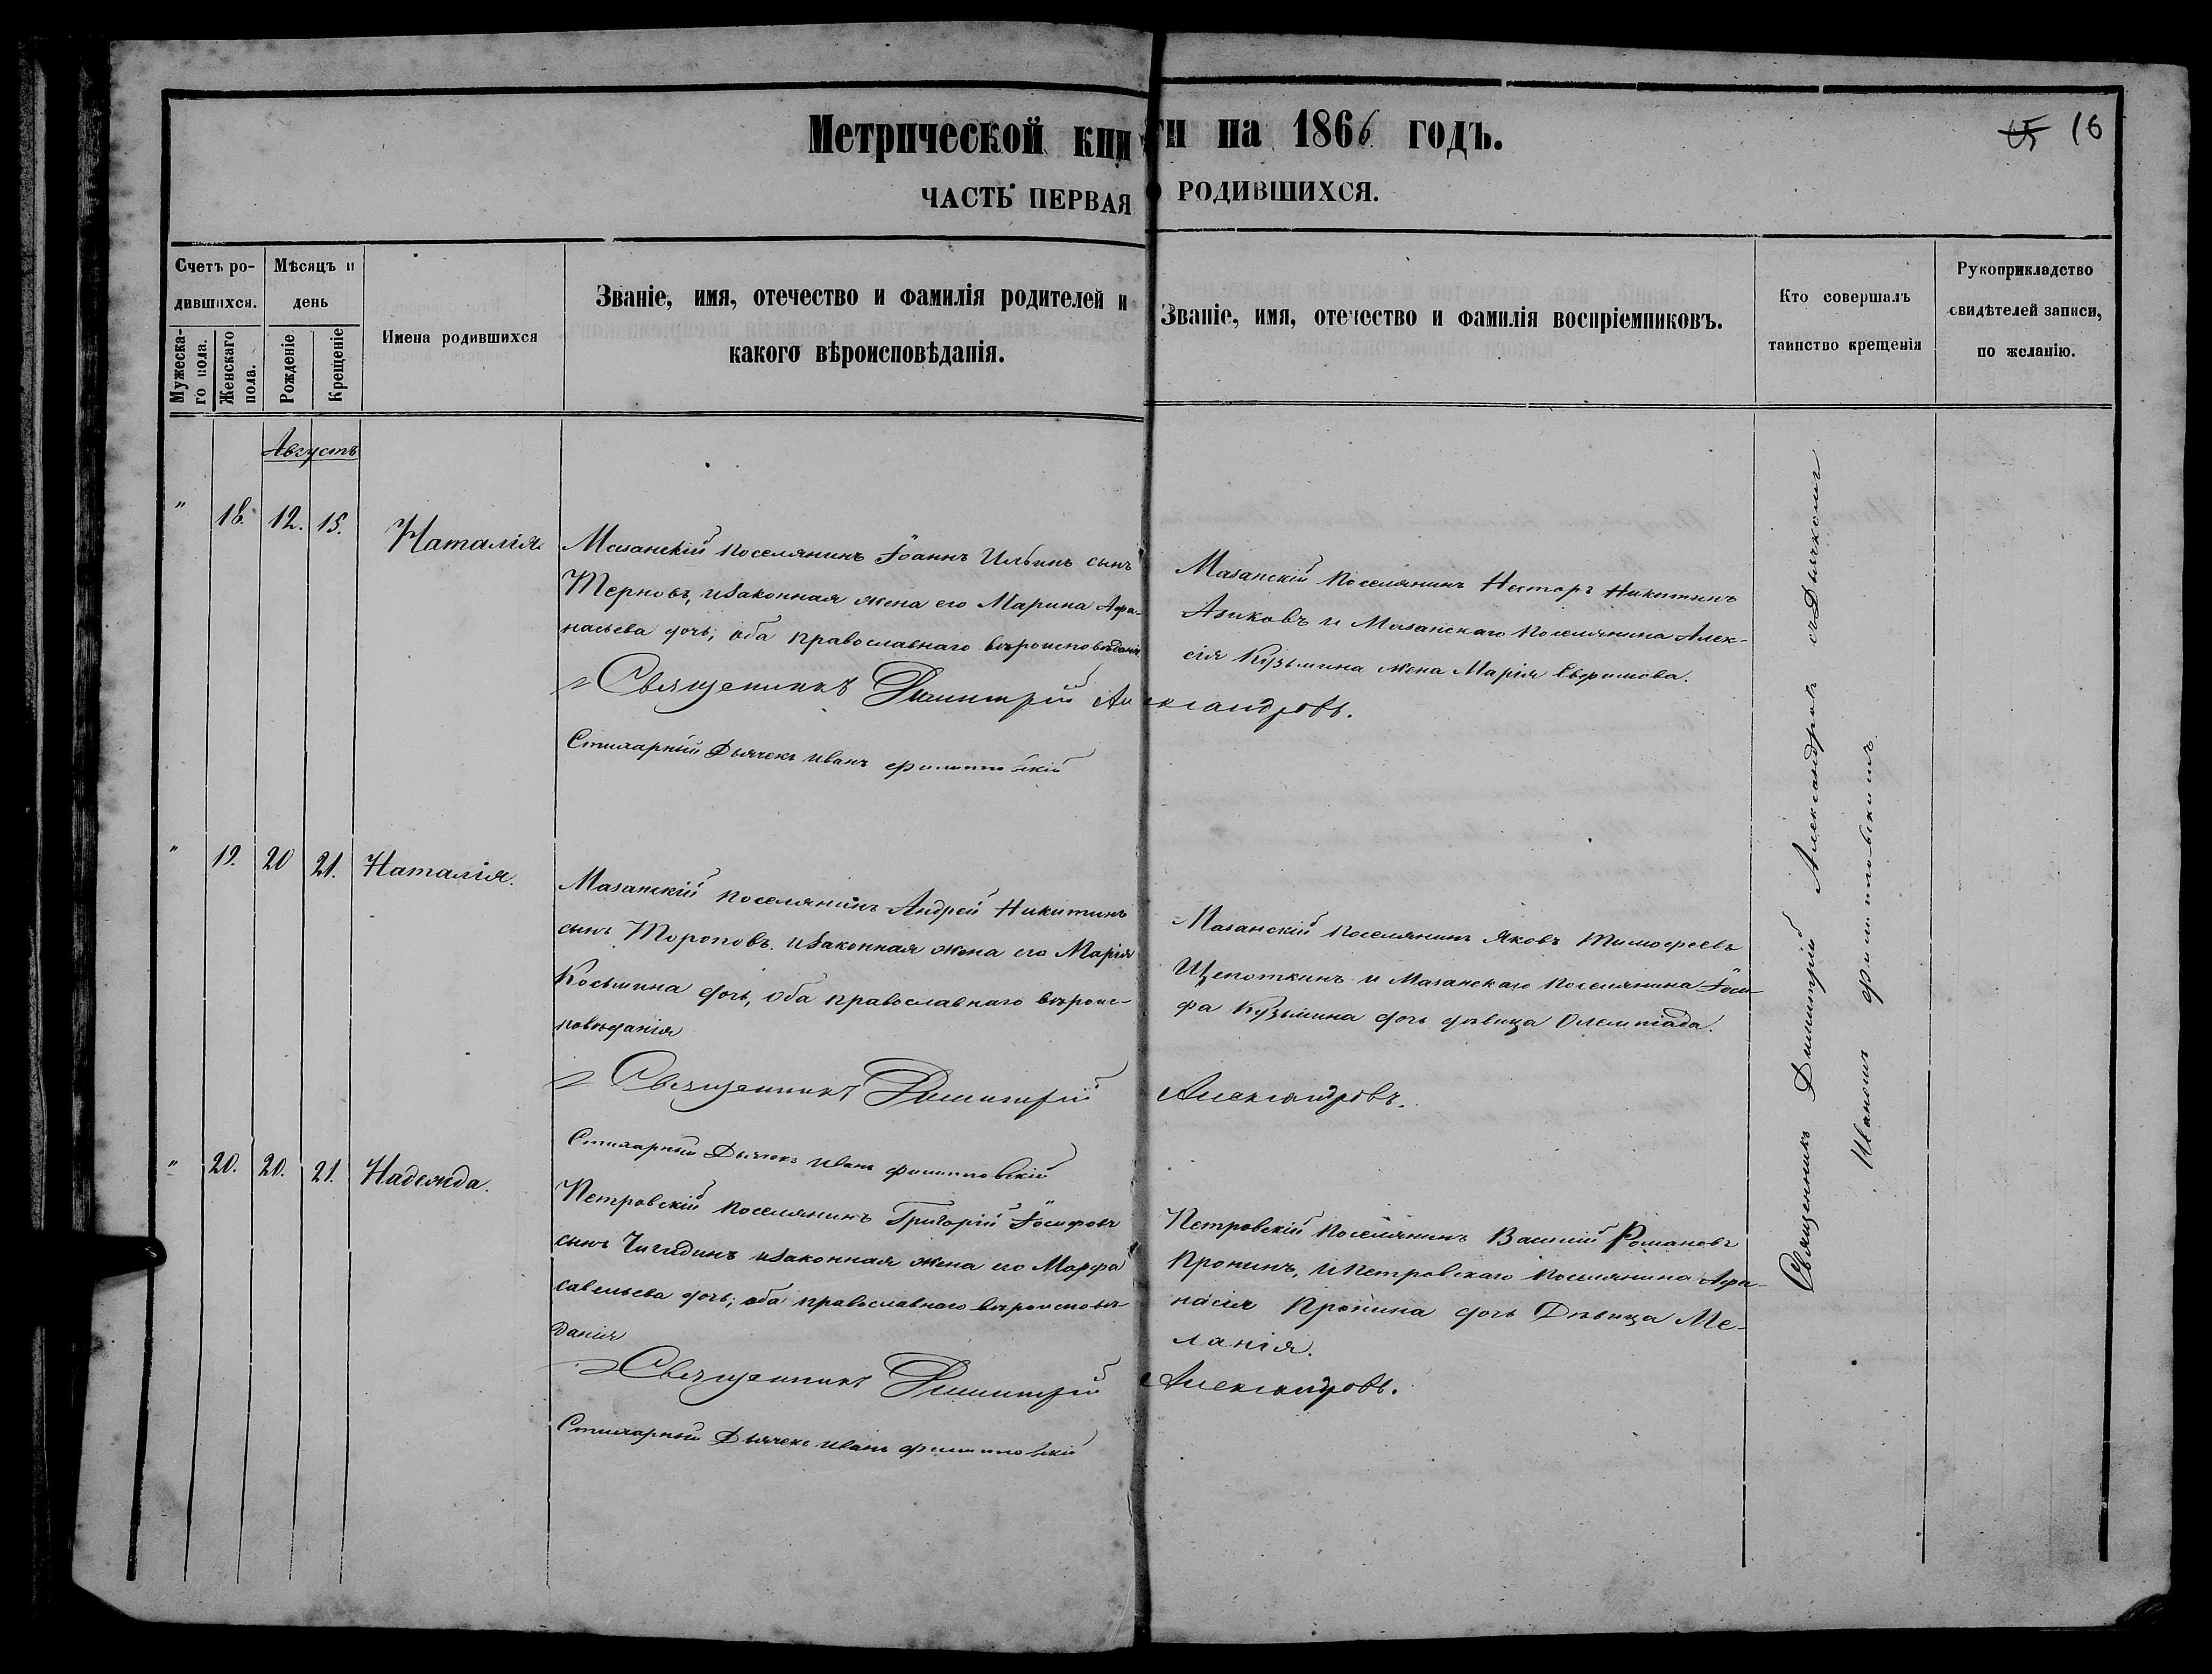 Метрической книги на 1866 годъ.
15 16
ЧАСТЬ ПЕРВАЯ О РОДИВШИХСЯ.
Счетъ родившихся.
Мужескаго пола.
Женскаго пола.
Мѣсяцъ и день
Рожденіе
Крещеніе
Имена родившихся
Званіе, имя, отечество и фамилія родителей и
какого вѣроисповѣданія.
Званіе, имя, отечество и фамилія воспріемниковъ.
Кто совершалъ
таинство крещенія
Рукоприкладство
свидѣтелей записи,
по желанію.
Августъ
" 18. 12. 15. Наталія.
Мазанскій поселянинъ Іоаннъ Ильинъ сынъ
Терновъ, изаконная жена его Марина Афа-
насьева дочь; оба православнаго вѣроисповѣданія
Мазанскій поселянинъ Несторъ Никитинъ
Азиковъ и Мазанскаго поселянина Алек-
сія Кузьмина жена Марія Ефимова.
Священникъ Димитрій Александровъ.
Стихарный Дьячекъ Иванъ Филипповскій
" 19. 20 21. Наталія.
Мазанскій поселянинъ Андрей Никитинъ
сынъ Тороповъ. изаконная жена его Марія
Косьмина дочь, оба православнаго вѣроис-
повѣданія
Мазанскій поселянинъ Яковъ Тимофеевъ
Щепоткинъ и Мазанскаго поселянина Іоси-
фа Кузьмина дочь дѣвица Олемпіада.
Священникъ Димитрій Александровъ.
Стихарный Дьячекъ Иванъ Филипповскій
" 20. 20. 21. Надежда.
Петровскій поселянинъ Григорій Іосифовъ
сынъ Чигидинъ изаконная жена его Марфа
савельева дочь; оба православнаго вѣроисповѣ-
данія
Петровскій поселянинъ Василій Романовъ
Пронинъ, и петровскаго поселянина Афа-
насія Пронина дочь Дѣвица Ме-
ланія.
Священникъ Димитрій Александровъ.
Стихарный Дьячекъ Иванъ Филипповскій
Священникъ Димитрій Александровъ съ Дьячкомъ
Иваномъ Филипповскимъ.